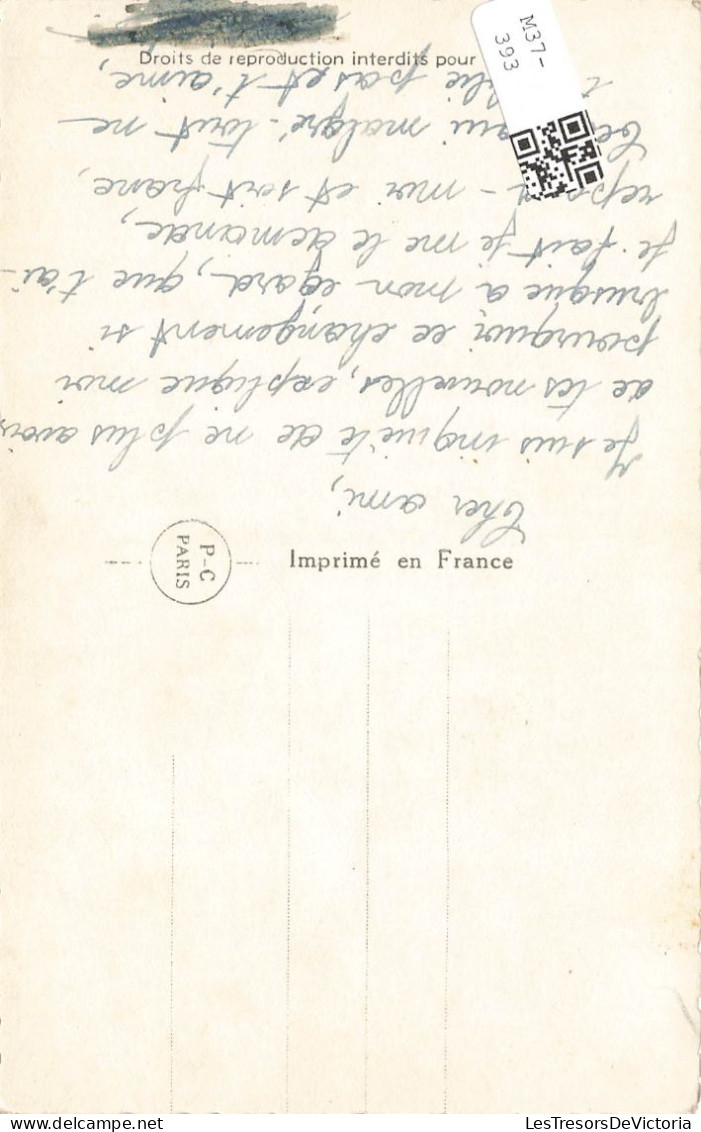 Cher ami,
Je suis inquiète de ne plus avoir
de tes nouvelles, explique moi
pourquoi ce changement si
brusque a mon égard, que t'ai-
je fait je me le demande,
moi et soit franc,
qui malgré-tout ne
pas et t'aime,
Droits de reproduction interdits pour
M37-
393
P-C
PARIS
Imprimé en France
LesTresorsDeVictoria.com